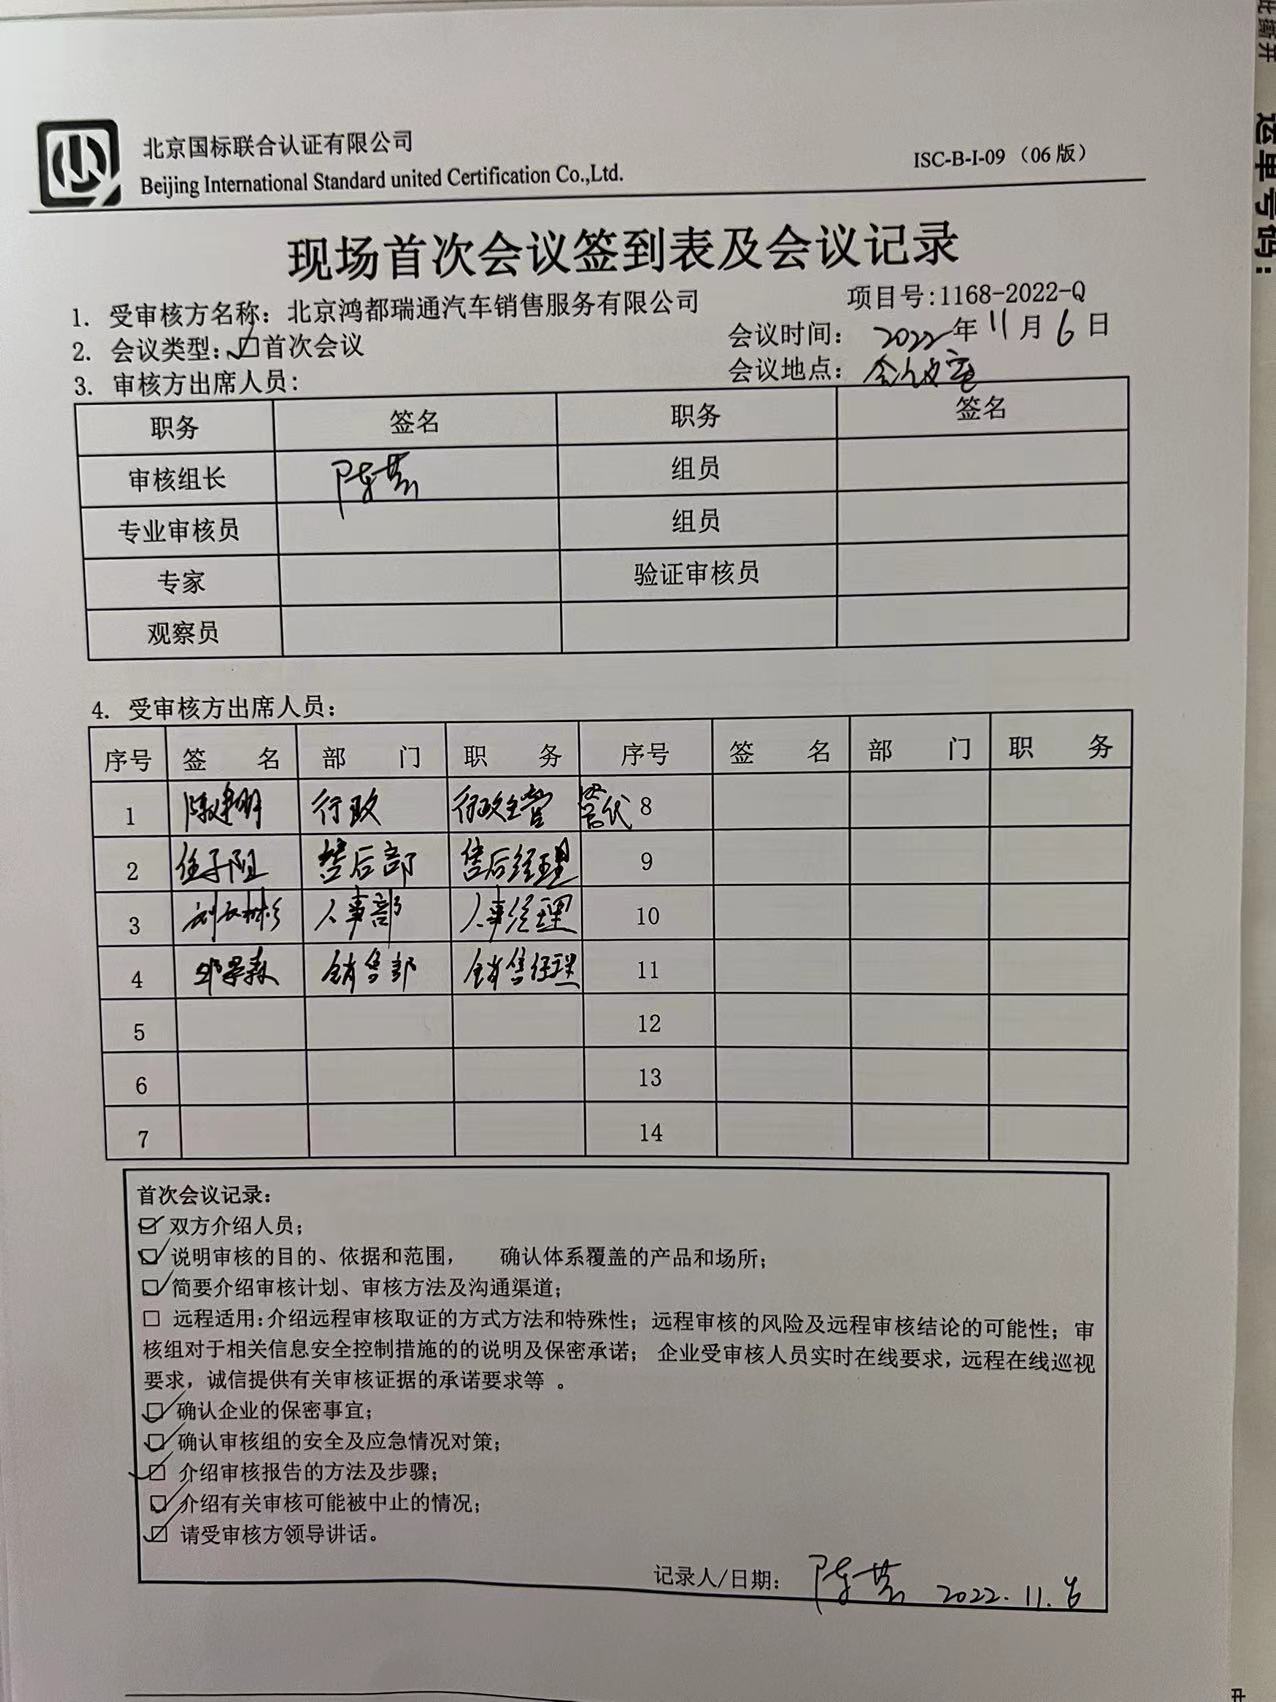 此撕开
运单号码：
北京国标联合认证有限公司
Beijing International Standard united Certification Co.,Ltd.
ISC-B-I-09（06版）
现场首次会议签到表及会议记录
1. 受审核方名称：北京鸿都瑞通汽车销售服务有限公司 项目号:1168-2022-Q
2. 会议类型:☑首次会议 会议时间： 2022年11月6日
3. 审核方出席人员: 会议地点：会议室
职务 签名 职务 签名
审核组长 陈芳 组员
专业审核员 组员
专家 验证审核员
观察员
4. 受审核方出席人员:
序号 签 名 部 门 职 务 序号 签 名 部 门 职 务
1 行政 行政主管 管代 8
2 任子阳 售后部 售后经理 9
3 人事部 人事经理 10
4 销售部 销售经理 11
5 12
6 13
7 14
首次会议记录:
☑ 双方介绍人员;
☑ 说明审核的目的、依据和范围， 确认体系覆盖的产品和场所;
☑ 简要介绍审核计划、审核方法及沟通渠道;
□ 远程适用:介绍远程审核取证的方式方法和特殊性; 远程审核的风险及远程审核结论的可能性; 审
核组对于相关信息安全控制措施的的说明及保密承诺; 企业受审核人员实时在线要求, 远程在线巡视
要求, 诚信提供有关审核证据的承诺要求等 。
☑ 确认企业的保密事宜;
☑ 确认审核组的安全及应急情况对策;
☑ 介绍审核报告的方法及步骤;
☑ 介绍有关审核可能被中止的情况;
☑ 请受审核方领导讲话。
记录人/日期: 陈芳 2022.11.6